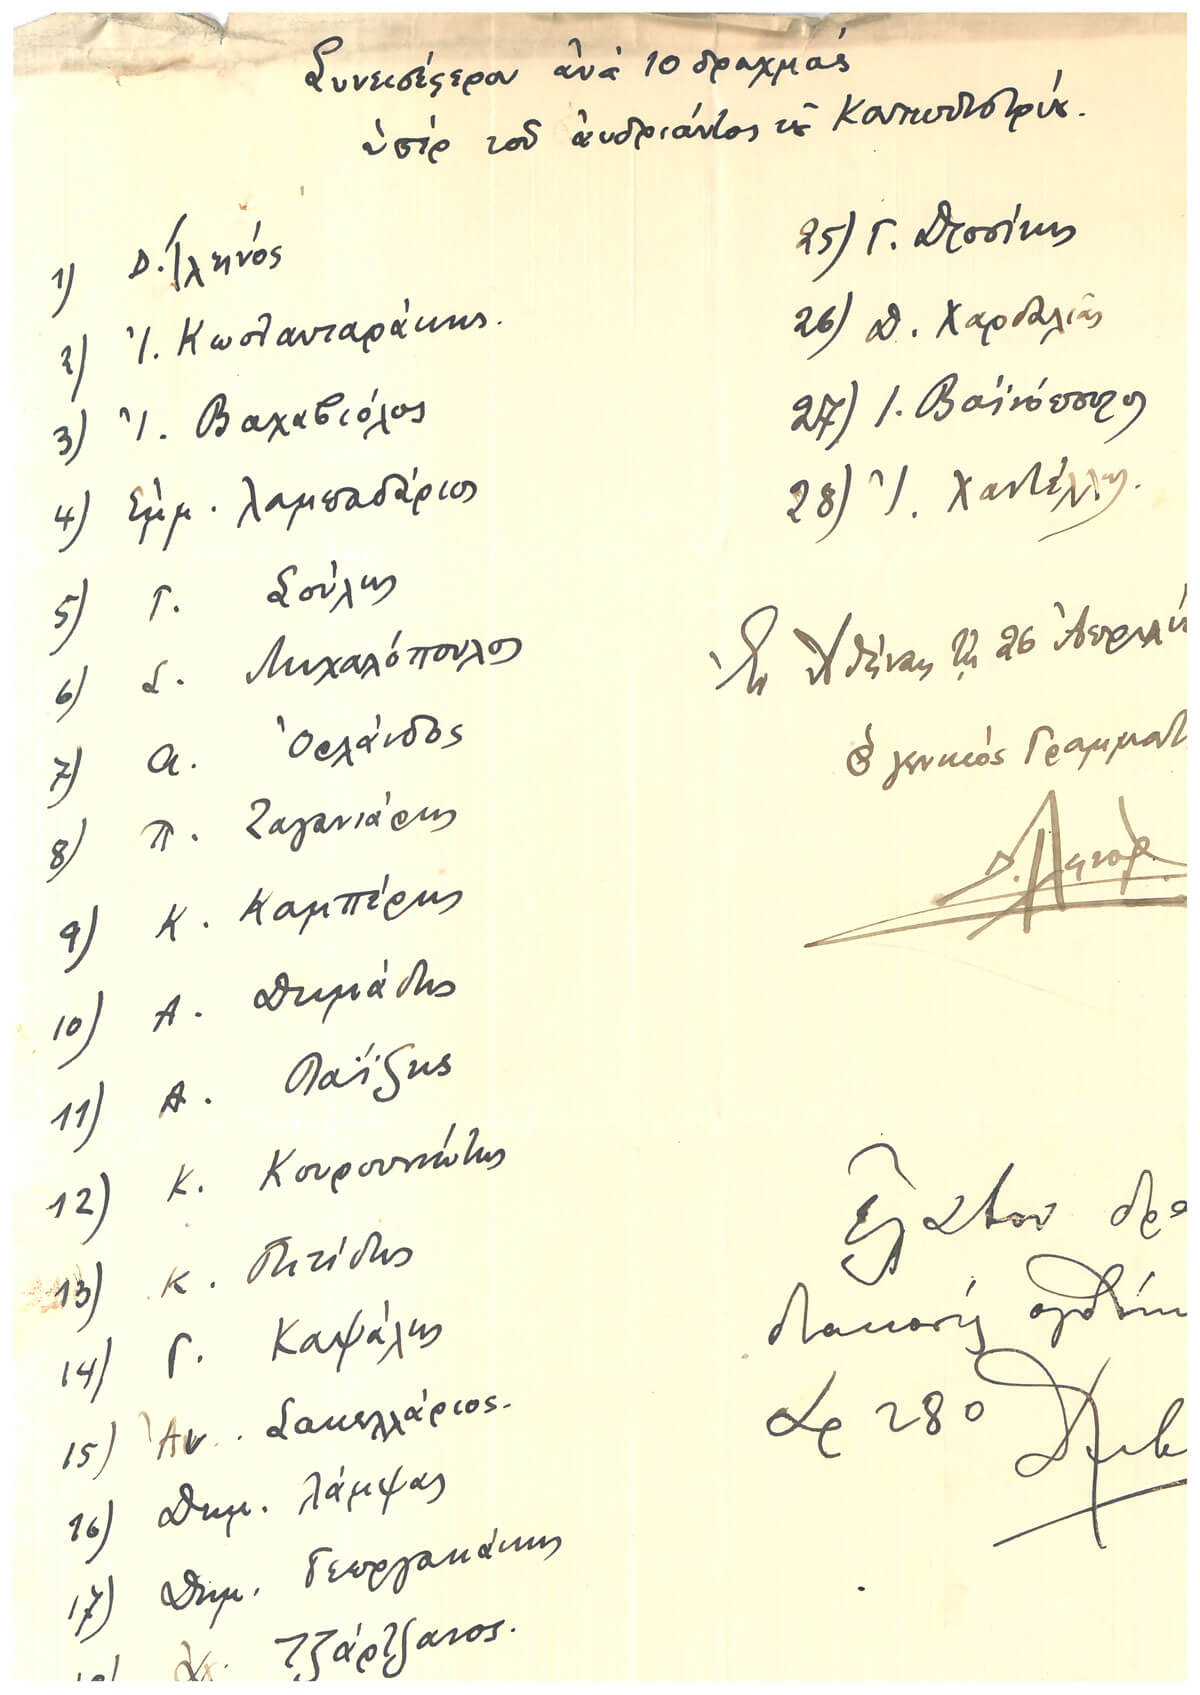 Συνεισέφερον ἀνὰ 10 δραχμάς
ὑπὲρ τοῦ ἀνδριάντος τοῦ Καποδιστρίου.
1) Δ.
2) Ἰ. Κωστανταράκης.
3) Ἰ. Βαχαβιόλος
4) Ἐμμ. Λαμπαδάριος
5) Γ. Σούλης
6) Σ. Μιχαλόπουλος
7) Α. Ὀρλάνδος
8) Π. Ζαγανιάρης
9) Κ. Καμπέρης
10) Α. Δημάδης
11) Α. Παΐζης
12) Κ. Κουρουνιώτης
13) Κ.
14) Γ. Καψάλης
15) Ἀν. Σακελλάριος.
16) Δημ. Λάμψας
17) Δημ. Γεωργακάκης
Τζάρτζανος.
25) Γ.
26) Δ. Χαρδαλιᾶς
27) Ι. Βαϊνόπουλος
28) Ἰ. Χαντέλλης.
Ἐν Ἀθήναις τῇ 26 Ἀπριλί
Ὁ γενικὸς Γραμματ
Ἔλαβον δρα
διακοσίας ὀγδόηκ
Δρ 280